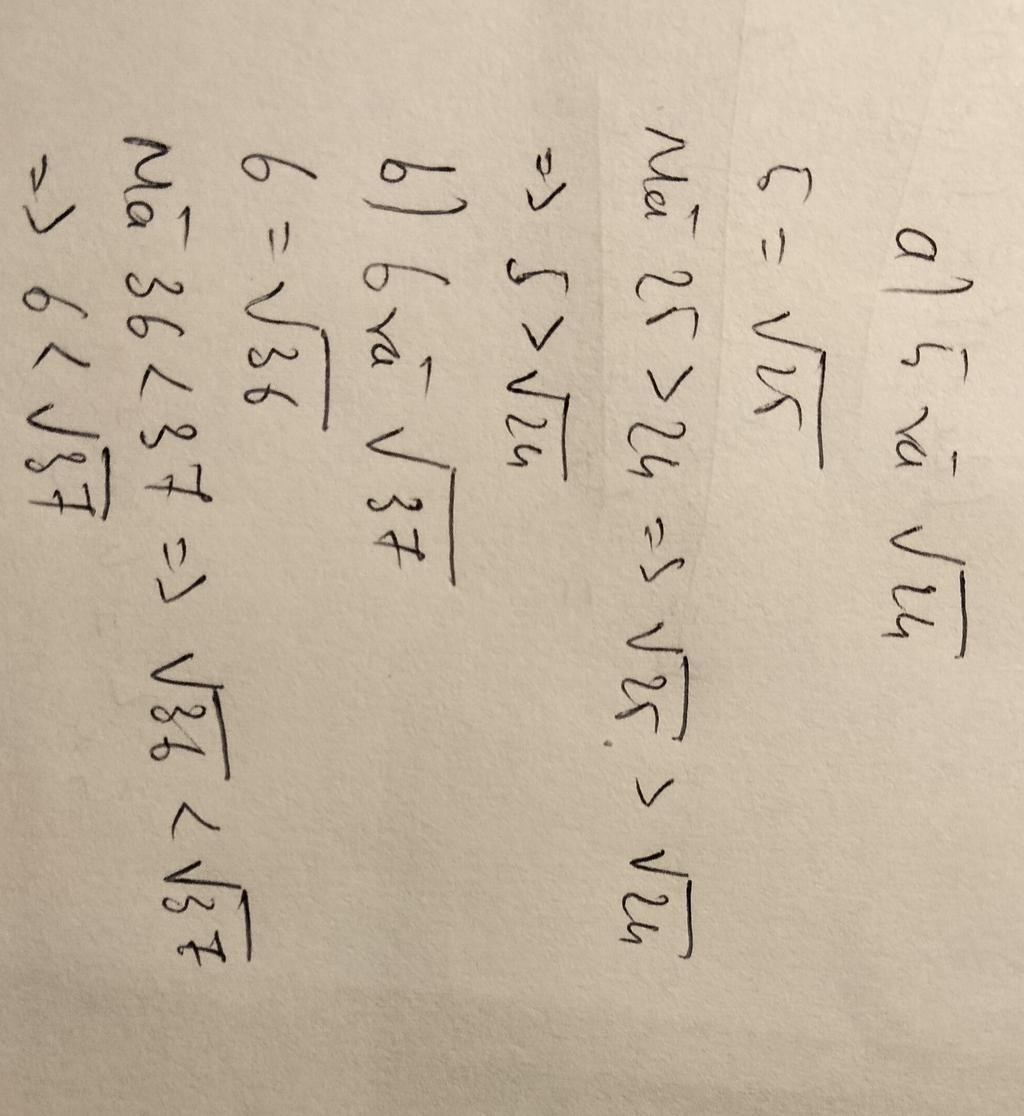 a) 5 và √24
5 = √25
Mà 25 > 24 => √25 > √24
=> 5 > √24
b) 6 và √37
6 = √36
Mà 36 < 37 => √36 < √37
=> 6 < √37